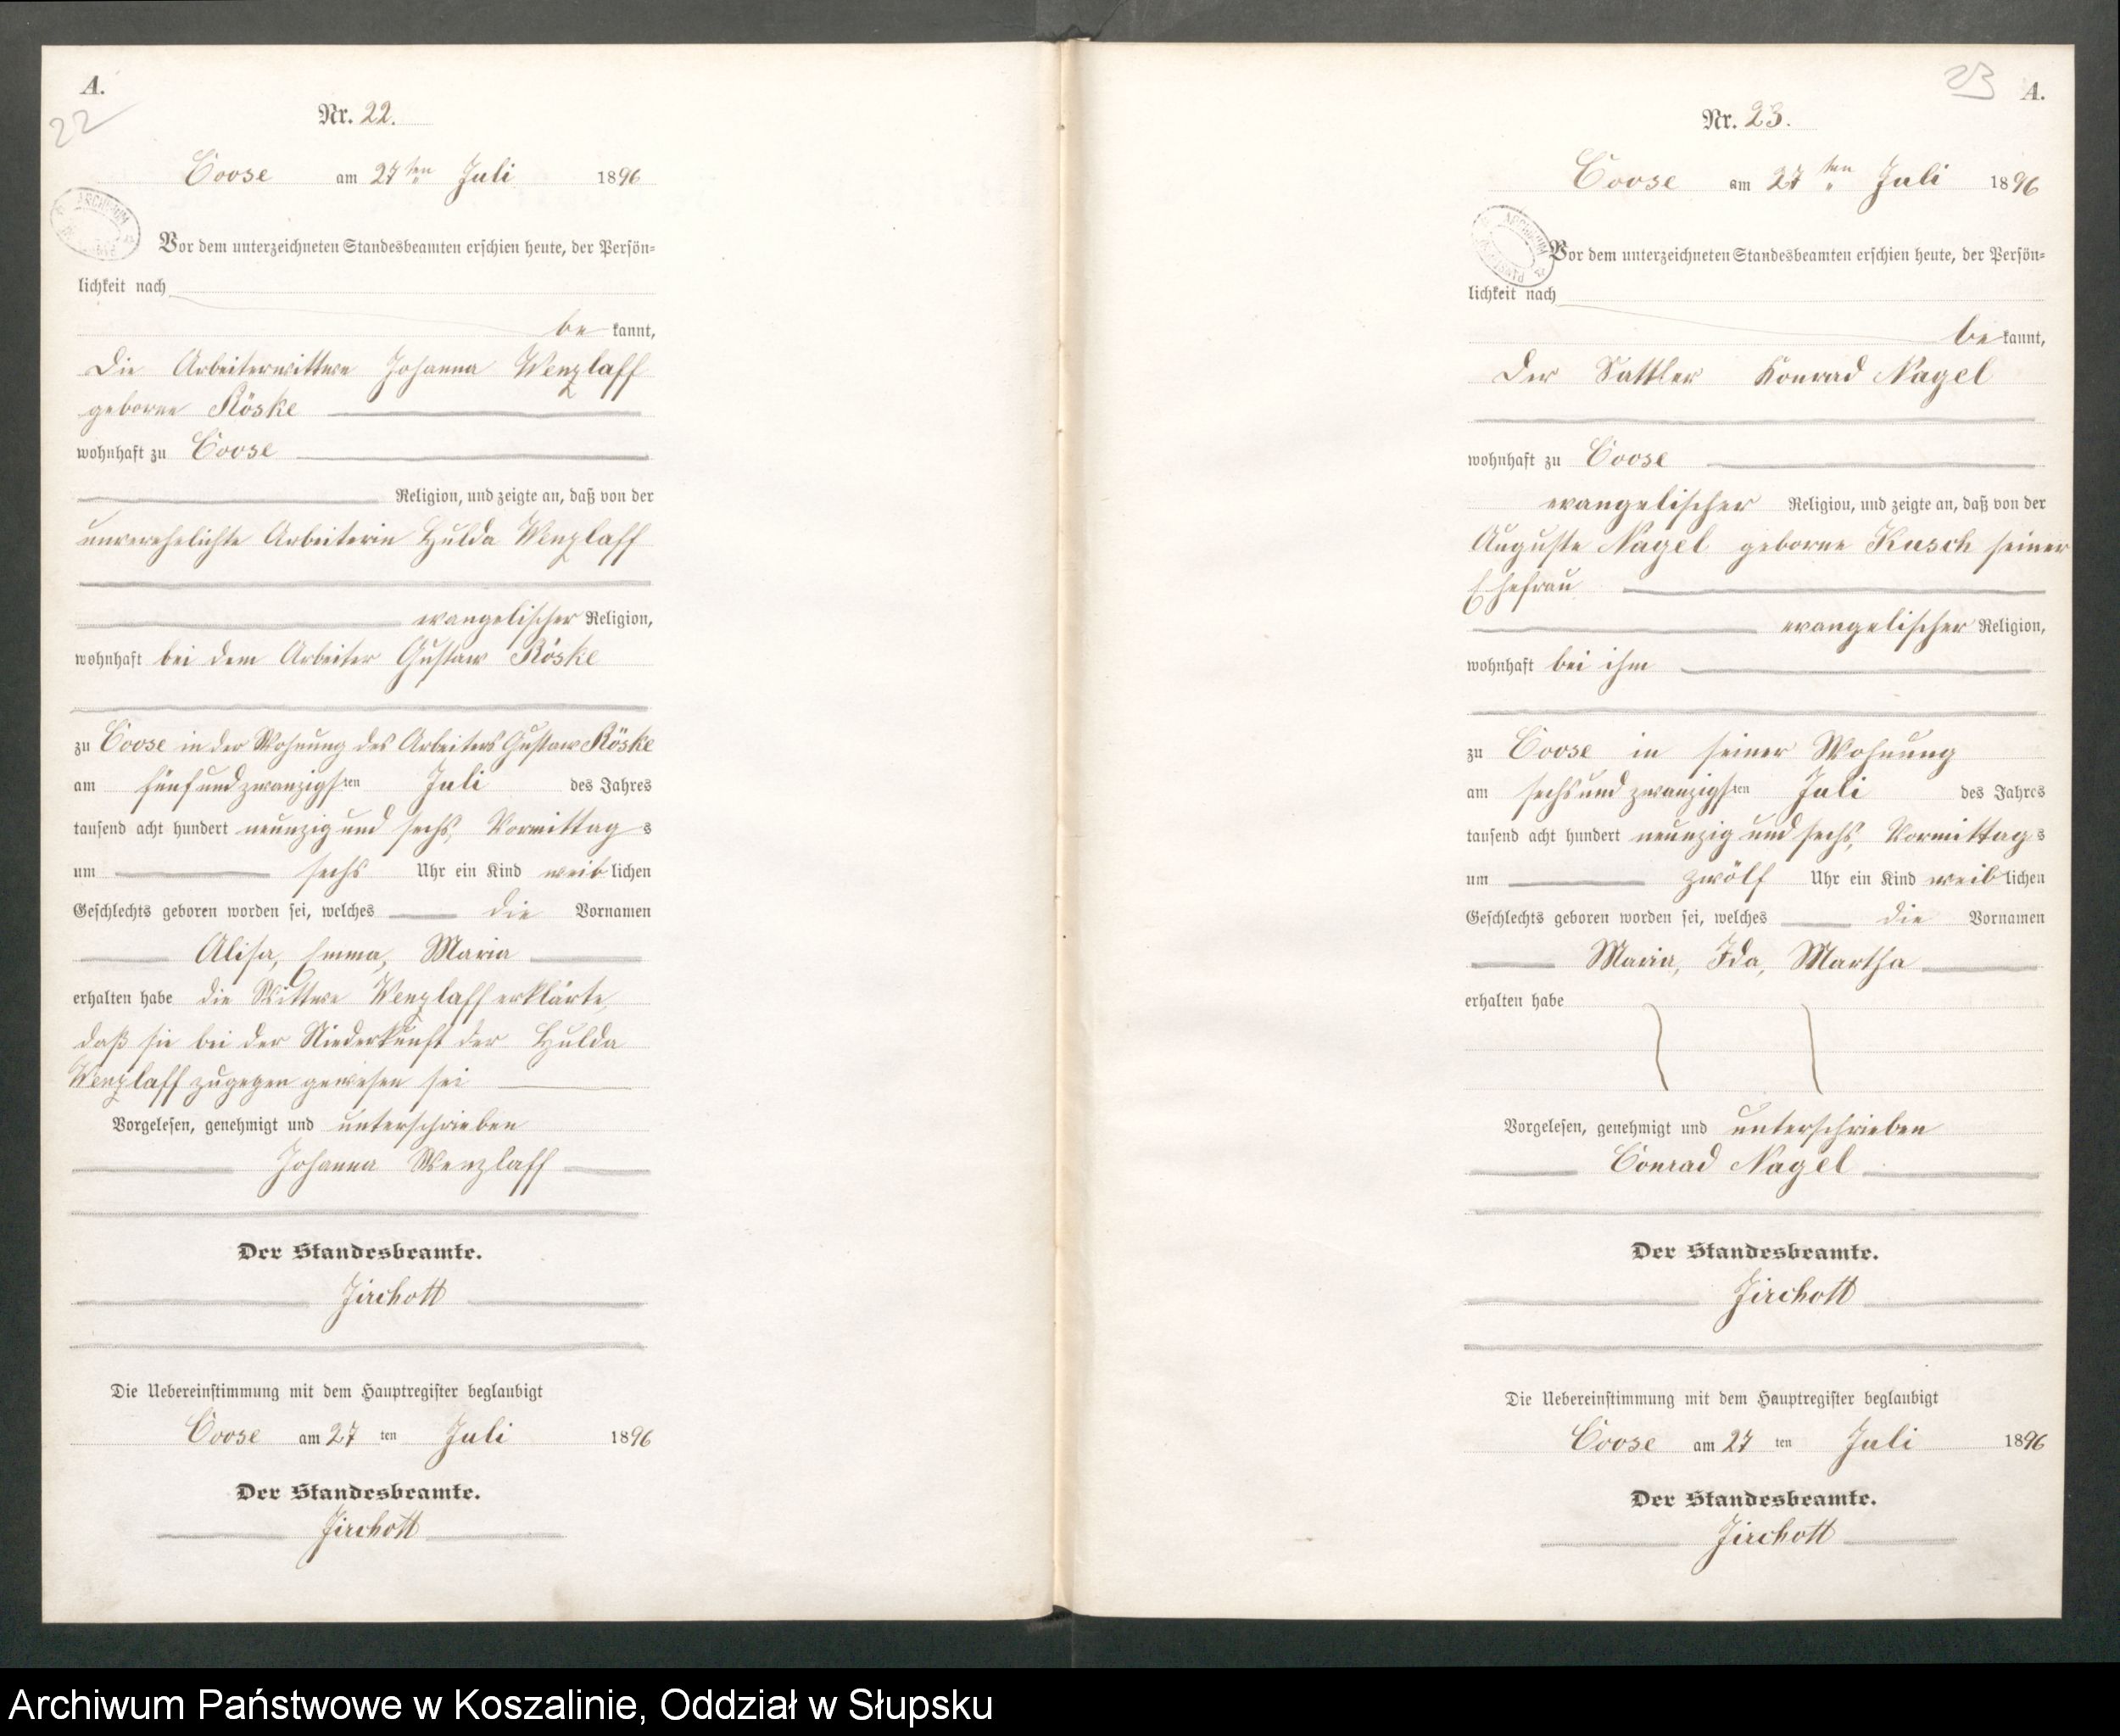 A.
22
Nr. 22.
Coose am 27ten Juli 1896
Vor dem unterzeichneten Standesbeamten erschien heute, der Persön=
lichkeit nach
be kannt,
die Arbeiterwittwe Johanna Wenzlaff
geborne Röske
wohnhaft zu Coose
Religion, und zeigte an, daß von der
unverehelichte Arbeiterin Hulda Wenzlaff
evangelischer Religion,
wohnhaft bei dem Arbeiter Gustav Röske
zu Coose in der Wohnung des Arbeiters Gustav Röske
am fünfundzwanzigsten Juli des Jahres
tausend acht hundert neunzig und sechs, Vormittags
um sechs Uhr ein Kind weiblichen
Geschlechts geboren worden sei, welches die Vornamen
Alisa, Emma, Maria
erhalten habe die Wittwe Wenzlaff erklärte,
daß sie bei der Niederkunft der Hulda
Wenzlaff zugegen gewesen sei
Vorgelesen, genehmigt und unterschrieben
Johanna Wenzlaff
Der Standesbeamte.
Jirchott
Die Uebereinstimmung mit dem Hauptregister beglaubigt
Coose am 27 ten Juli 1896
Der Standesbeamte.
Jirchott
23 A.
Nr. 23.
Coose am 27ten Juli 1896
Vor dem unterzeichneten Standesbeamten erschien heute, der Persön=
lichkeit nach
be kannt,
der Sattler Konrad Nagel
wohnhaft zu Coose
evangelischer Religion, und zeigte an, daß von der
Auguste Nagel geborne Kusch seiner
Ehefrau
evangelischer Religion,
wohnhaft bei ihm
zu Coose in seiner Wohnung
am sechsundzwanzigsten Juli des Jahres
tausend acht hundert neunzig und sechs, Vormittags
um zwölf Uhr ein Kind weiblichen
Geschlechts geboren worden sei, welches die Vornamen
Maria, Ida, Martha
erhalten habe
Vorgelesen, genehmigt und unterschrieben
Conrad Nagel
Der Standesbeamte.
Jirchott
Die Uebereinstimmung mit dem Hauptregister beglaubigt
Coose am 27 ten Juli 1896
Der Standesbeamte.
Jirchott
Archiwum Państwowe w Koszalinie, Oddział w Słupsku